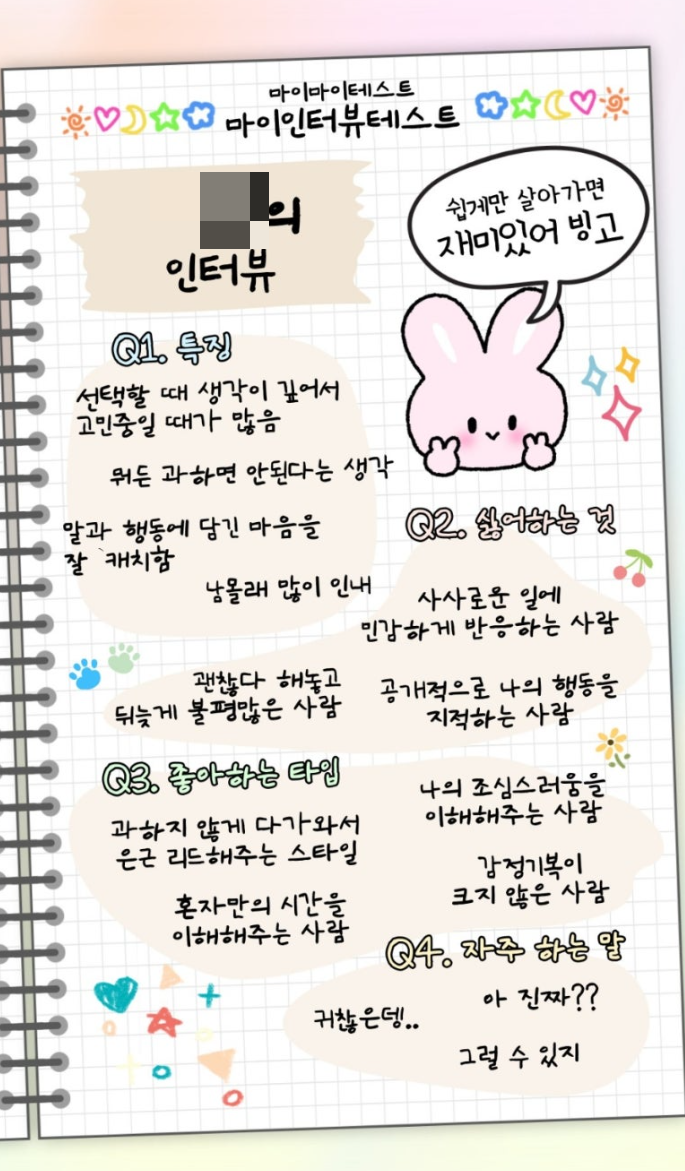 마이마이테스트
마이인터뷰테스트
의
인터뷰
쉽게만 살아가면
재미있어 빙고
Q1. 특징
선택할 때 생각이 깊어서
고민중일 때가 많음
뭐든 과하면 안된다는 생각
말과 행동에 담긴 마음을
잘 캐치함
남몰래 많이 인내
Q2. 싫어하는 것
사사로운 일에
민감하게 반응하는 사람
괜찮다 해놓고
뒤늦게 불평많은 사람
공개적으로 나의 행동을
지적하는 사람
Q3. 좋아하는 타입
과하지 않게 다가와서
은근 리드해주는 스타일
나의 조심스러움을
이해해주는 사람
혼자만의 시간을
이해해주는 사람
감정기복이
크지 않은 사람
Q4. 자주 하는 말
아 진짜??
귀찮은뎅..
그럴 수 있지